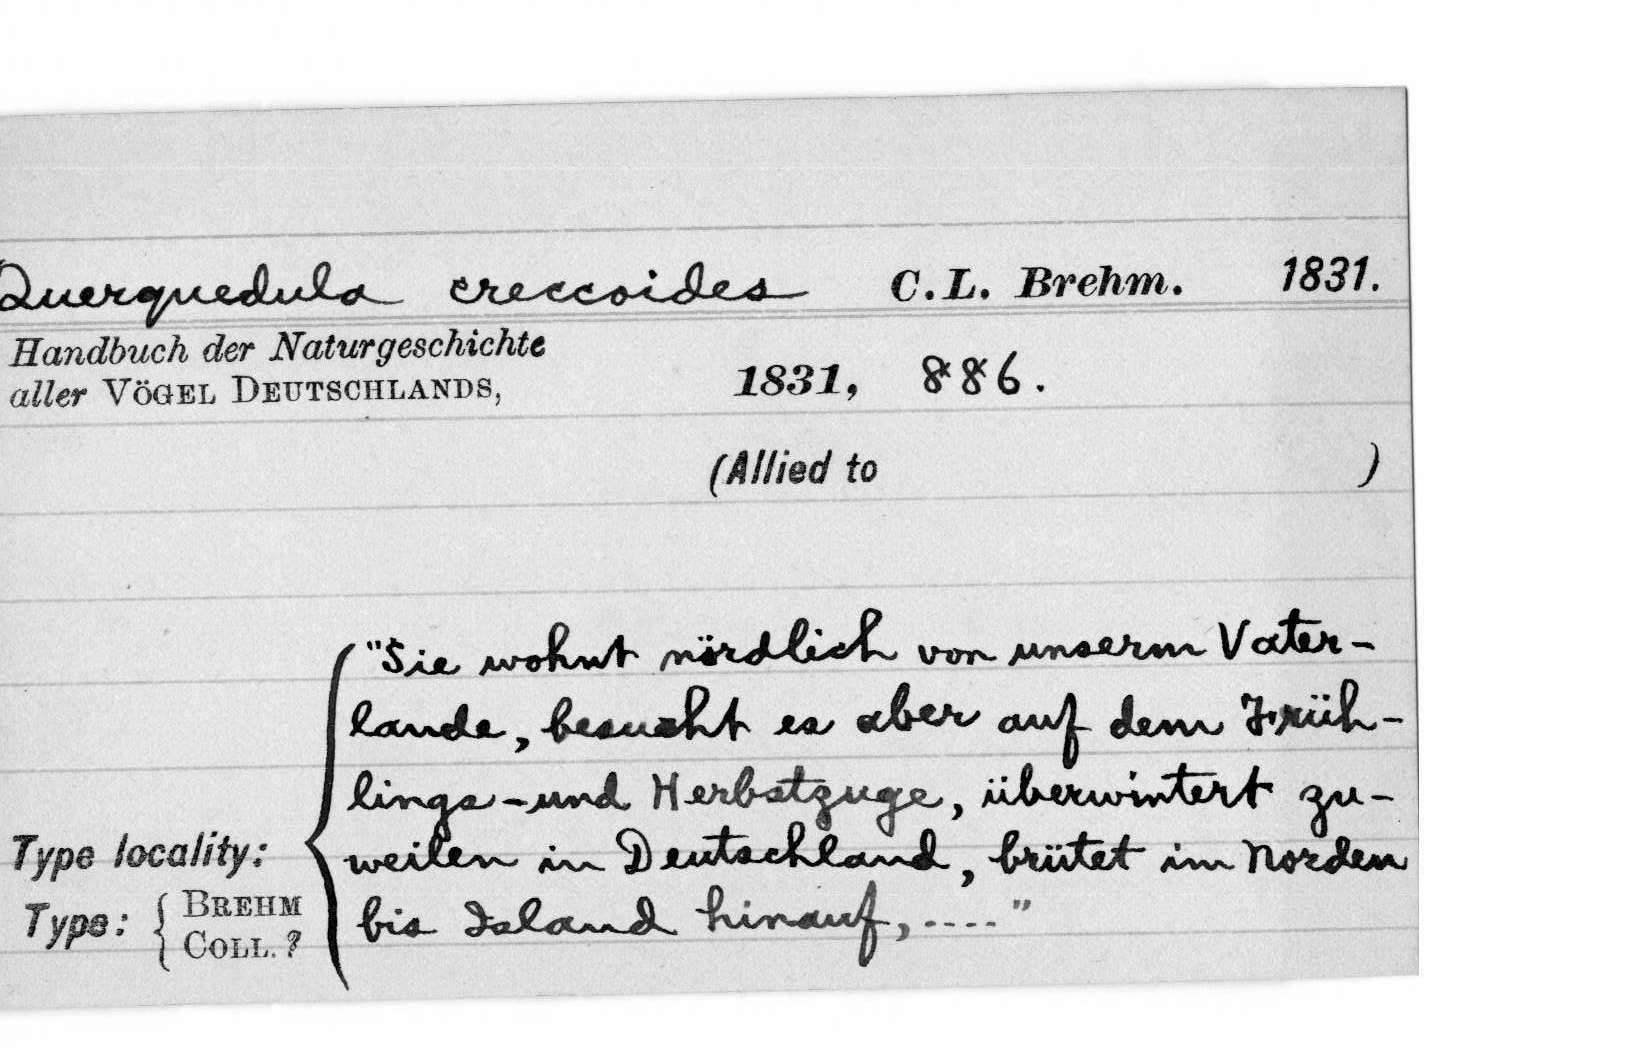 Querquedula creccoides C.L. Brehm. 1831.
Handbuch der Naturgeschichte
aller VÖGEL DEUTSCHLANDS, 1831, 886.
(Allied to )
"Sie wohnt nördlich von unserm Vater-
lande, besucht es aber auf dem Früh-
lings-und Herbstzuge, überwintert zu-
Type locality: weilen in Deutschland, brütet im Norden
Type: { BREHM COLL. ? bis Island hinauf,...."